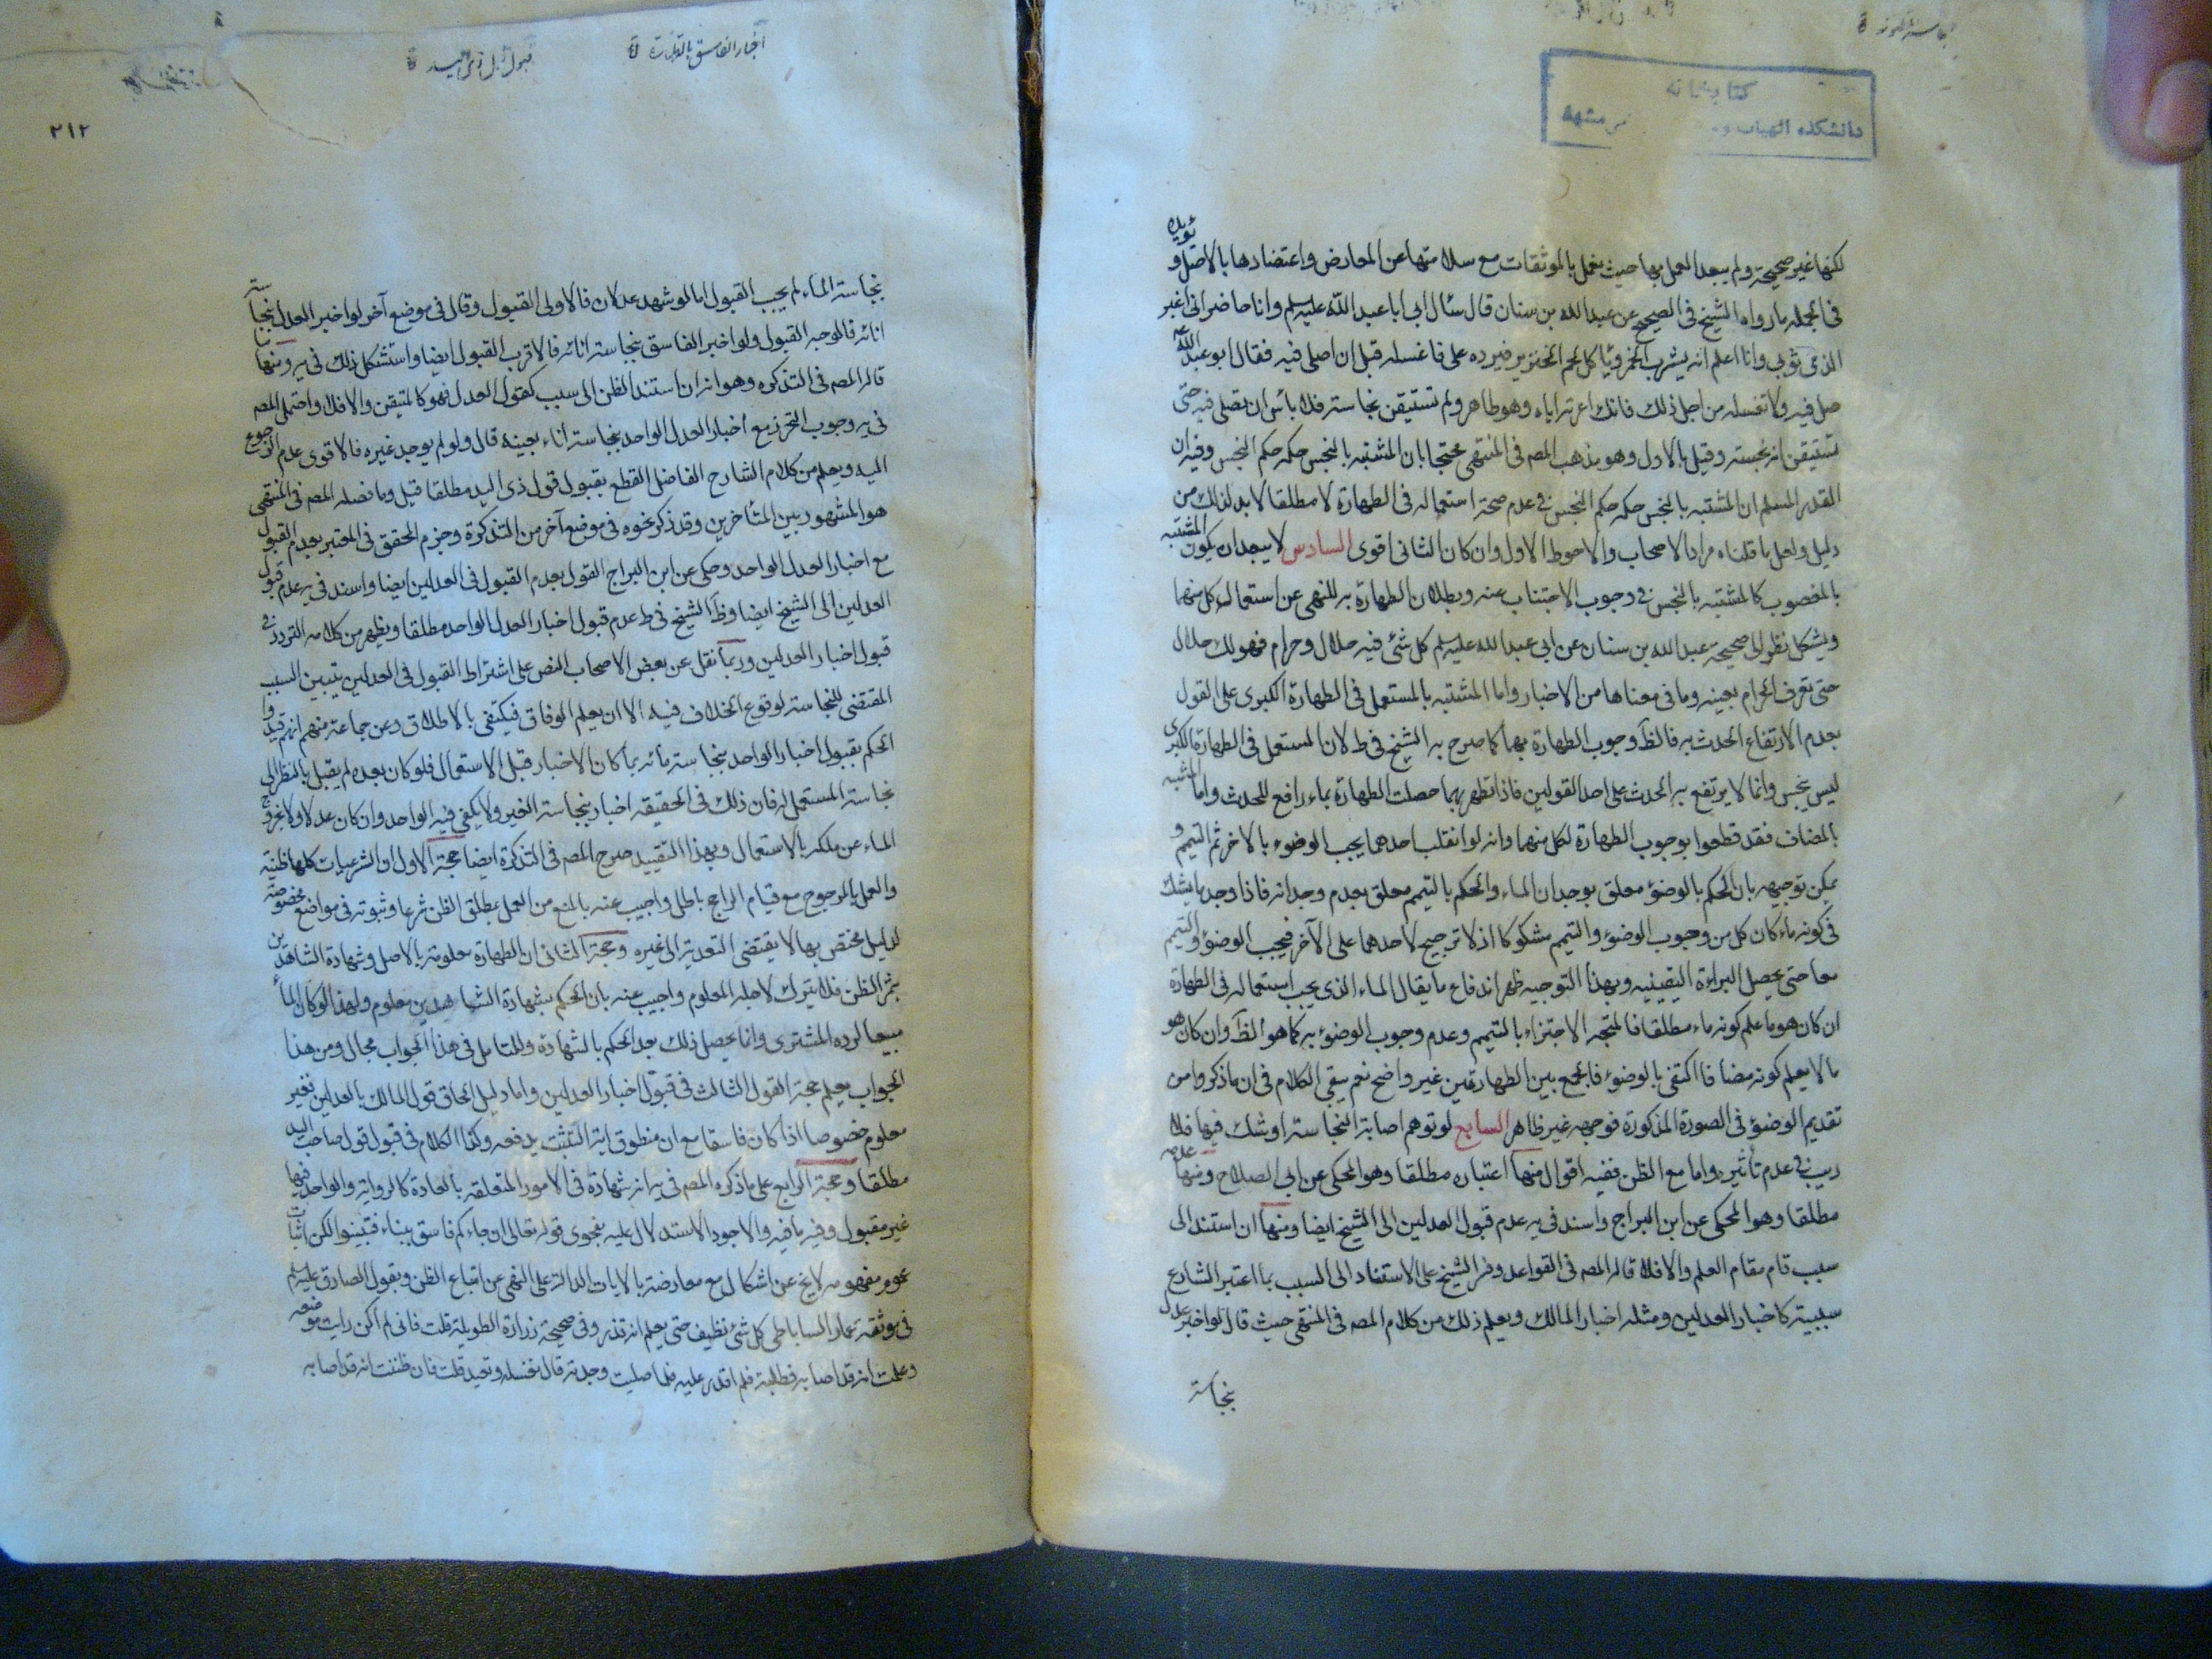 كتابخانه
دانشكده الهيات و
مشهد
لكنها غير صحيحة ولم يبعد العمل بها حيث يعمل بالموثقات مع سلامتها عن المعارض واعتضادها بالاصل و يؤيده
فى الجمله ما رواه الشيخ فى الصحيح عن عبد الله بن سنان قال سئال ابى ابا عبد الله عليه سلم وانا حاضر انى اعير
الذى ثوبى وانا اعلم انه يشرب الخمر ويأكل لحم الخنزير فيرده على فاغسله قبل ان اصلى فيه فقال ابو عبد الله
صل فيه ولا تغسله من اجل ذلك فانك اعرته اياه وهو طاهر ولم تستيقن نجاسته فلا بأس ان تصلى فيه حتى
تستيقن انه نجسته وقيل بالاول وهو مذهب المصه فى المنتهى محتجا بان المشتبه بالنجس حكمه حكم النجس وفيه ان
القدر المسلم ان المشتبه بالنجس حكمه حكم النجس فى عدم صحة استعماله فى الطهارة لا مطلقا لا بد لذلك من
دليل ولعل ما قلناه مراد الاصحاب والاحوط الاول وان كان الثانى اقوى السادس لا يبعد ان يكون المشتبه
بالمغصوب كالمشتبه بالنجس فى وجوب الاجتناب عنه وبطلان الطهارة به للنهى عن استعمال كل منهما
ويشكل نظرا الى صحيحة عبد الله بن سنان عن ابى عبد الله عليه سلم كل شئ فيه حلال وحرام فهو لك حلال
حتى تعرف الحرام بعينه وما فى معناها من الاخبار واما المشتبه بالمستعمل فى الطهارة الكبرى على القول
بعدم الارتفاع الحدث به فالظ وجوب الطهارة بهما كما صرح به الشيخ فى ط لان المستعمل فى الطهارة الكبرى
ليس بنجس وانما لا يرتفع به الحدث على احد القولين فاذا تطهر بهما حصلت الطهارة بماء رافع للحدث واما المشتبه
بالمضاف فقد قطعوا بوجوب الطهارة لكل منهما وانه لو انقلب احدهما يجب الوضوء بالاخر ثم التيمم و
يمكن توجيهه بان الحكم بالوضؤ معلق بوجدان الماء والحكم بالتيمم معلق بعدم وجدانه فاذا وجد ما يشك
فى كونه ماء كان كل من وجوب الوضؤ والتيمم مشكوكا اذ لا ترجيح لاحدهما على الآخر فيجب الوضؤ والتيمم
معا حتى يحصل البراءة اليقينيه وبهذا التوجيه ظهر اندفاع ما يقال الماء الذى يجب استعماله فى الطهارة
ان كان هو ما علم كونه ماء مطلقا فالمتجه الاجتزاء بالتيمم وعدم وجوب الوضؤ به كما هو الظ وان كان هو
ما لا يعلم كونه مضافا اكتفى بالوضؤ فالجمع بين الطهارتين غير واضح نعم يبقى الكلام فى ان ما ذكروا من
تقديم الوضؤ فى الصورة المذكورة فوجهه غير ظاهر السابع لو توهم اصابة النجاسة او شك فيها فلا
ريب فى عدم تأثيره واما مع الظن ففيه اقوال منها اعتباره مطلقا وهو المحكى عن ابى الصلاح ومنها عدمه
مطلقا وهو المحكى عن ابن البراج واسند فى يه عدم قبول العدلين الى الشيخ ايضا ومنها ان استند الى
سبب قام مقام العلم والا فلا قاله المصه فى القواعد وفر الشيخ على الاستناد الى السبب بما اعتبر الشارع
سببيته كاخبار العدلين ومثله اخبار المالك ويعلم ذلك من كلام المصه فى المنتهى حيث قال لو اخبر عدل
بنجاسته
اخبار الفاسق بالطهارة
قبول قول ذى اليد
٢١٢
بنجاسة الماء لم يجب القبول اما لو شهد عدلان فالاولى القبول وقال فى موضع آخر لو اخبر العدل بنجاسة
انائه فالوجه القبول ولو اخبر الفاسق بنجاسة انائه فالاقرب القبول ايضا واستشكل ذلك فى يه ومنها ما
قاله المصه فى التذكره وهو انه ان استند الظن الى سبب كقول العدل فهو كالمتيقن والا فلا واحتمل المصه
فى يه وجوب التحرز مع اخبار العدل الواحد بنجاسة اناء بعينه قال ولو لم يوجد غيره فالاقوى عدم الرجوع
اليه ويعلم من كلام الشارح الفاضل القطع بقبول قول ذى اليد مطلقا قيل وما فصله المصه فى المنتهى
هو المشهور بين المتأخرين وقد ذكر نحوه فى موضع آخر من التذكرة وجزم المحقق فى المعتبر بعدم القبول
مع اخبار العدل الواحد وحكى عن ابن البراج القول بعدم القبول فى العدلين ايضا واسند فى يه عدم قبول
العدلين الى الشيخ ايضا وظ الشيخ فى ط عدم قبول اخبار العدل الواحد مطلقا ويظهر من كلامه التردد فى
قبول اخبار العدلين وربما نقل عن بعض الاصحاب النص على اشتراط القبول فى العدلين بتبيين السبب
المقتضى للنجاسة لوقوع الخلاف فيه الا ان يعلم الوفاق فيكتفى بالاطلاق وعن جماعة منهم انهم قيدوا
الحكم بقبول اخبار الواحد بنجاسة مائه بما كان الاخبار قبل الاستعمال فلو كان بعده لم يقبل بالنظر الى
نجاسة المستعمل له فان ذلك فى الحقيقه اخبار بنجاسة الغير ولا يكفى فيه الواحد وان كان عدلا ولا يخرج
الماء عن ملكه بالاستعمال وبهذا التقييد صرح المصه فى التذكرة ايضا حجة الاول ان الشرعيات كلها ظنية
والعمل بالمرجوح مع قيام الراجح باطل واجيب عنه بالمنع من العمل بمطلق الظن شرعا وثبوته فى مواضع مخصوصة
لدليل مختص بها لا يقتضى التعدية الى غيره وحجة الثانى ان الطهارة معلومة بالاصل وشهادة الشاهدين
يثمر الظن فلا يترك لاجله المعلوم واجيب عنه بان الحكم بشهادة الشاهدين معلوم ولهذا لو كان الماء
مبيعا لرده المشترى وانما يحصل ذلك بعد الحكم بالشهادة وللتأمل فى هذا الجواب مجال ومن هذا
الجواب يعلم حجة القول الثالث فى قبول اخبار العدلين واما دليل الحاق قول المالك بالعدلين فغير
معلوم خصوصا اذا كان فاسقا مع ان منطوق اية التثبت يدفعه وكذا الكلام فى قبول قول صاحب اليد
مطلقا وحجة الرابع على ما ذكره المصه فى يه انه شهادة فى الامور المتعلقه بالعبادة كالرواية والواحد فيها
غير مقبول وفيه ما فيه والاجود الاستدلال عليه بفحوى قوله تعالى ان جاءكم فاسق بنباء فتبينوا لكن اثبات
عموم مفهومه لا يخ عن اشكال مع معارضة بالايات الدالة على النهى عن اتباع الظن وبقول الصادق عليه سلم
فى موثقة عمار الساباطى كل شئ نظيف حتى يعلم انه قذر وفى صحيحة زرارة الطويلة قلت فانى لم اكن رايت موضعه
وعلمت انه قد اصابه فطلبته فلم اقدر عليه فلما صليت وجدته قال تغسله وتعيد قلت فان ظننت انه قد اصابه